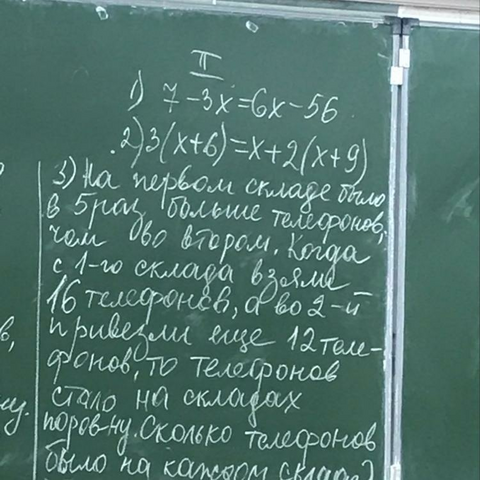 II
1) 7-3x=6x-56
2) 3(x+6)=x+2(x+9)
3) На первом складе было
в 5 раз больше телефонов,
чем во втором. Когда
с 1-го склада взяли
16 телефонов, а во 2-й
привезли еще 12 теле-
фонов, то телефонов
стало на складах
поровну. Сколько телефонов
было на каждом складе?